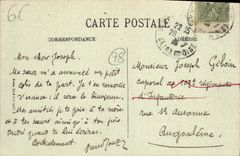 6C
CARTE POSTALE
CORRESPONDANCE
ADRESSE
78
Mon cher Joseph.
Ma sœur m'a annoncé un petit
colis de ta part. Je t'en remercie
d'avance: il sera le bienvenu.
Mes amitiés je te prie à ta mère
et à ta sœur ainsi qu'à ton père
quand tu lui écriras.
Cordialement
Monsieur Joseph Gélou
caporal au régiment
d'Infanterie
rue St Ausonne
Angoulême.